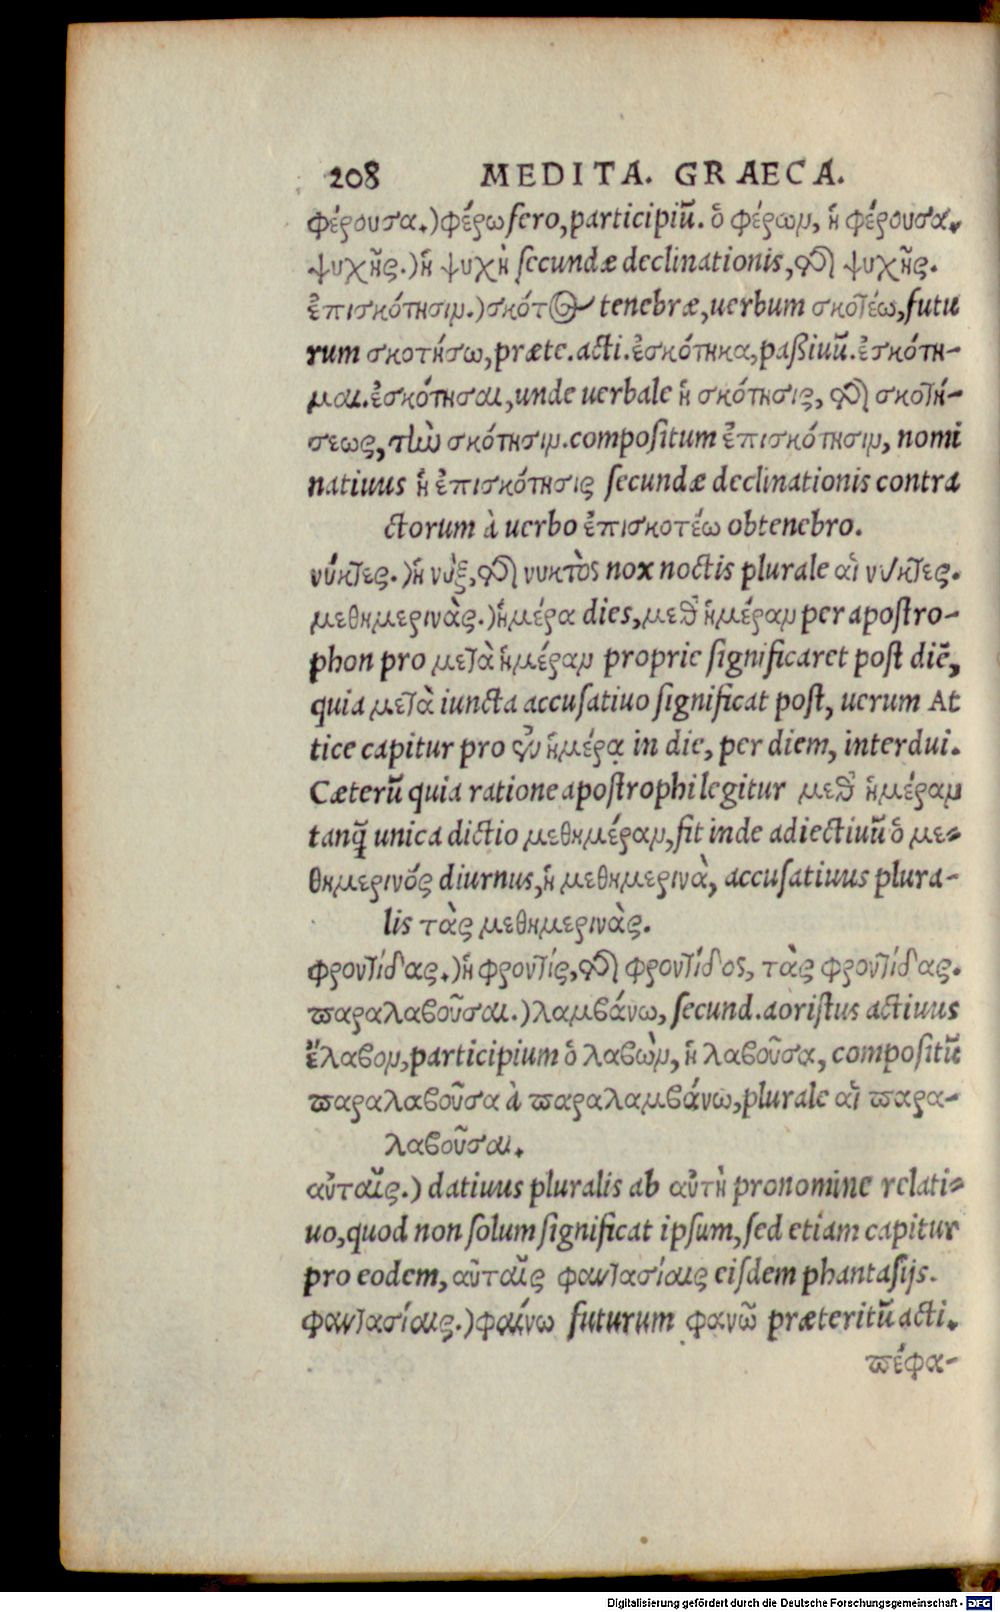 208 MEDITA. GRAECA.
φέρουσα.) φέρω fero, participiũ. ὁ φέρων, ἡ φέρουσα.
ψυχῆς.) ἡ ψυχὴ secundæ declinationis, τῆς ψυχῆς.
ἐπισκότησιν.) σκότος tenebræ, uerbum σκοτέω, futu
rum σκοτήσω, præte. acti. ἐσκότηκα, paßiuũ. ἐσκότη-
μαι. ἐσκότησαι, unde uerbale ἡ σκότησις, τῆς σκοτή-
σεως, τὴν σκότησιν. compositum ἐπισκότησιν, nomi
natiuus ἡ ἐπισκότησις secundæ declinationis contra
ctorum à uerbo ἐπισκοτέω obtenebro.
νύκτες.) ἡ νὺξ, τῆς νυκτὸς nox noctis plurale αἱ νύκτες.
μεθημερινὰς.) ἡμέρα dies, μεθ' ἡμέραν per apostro-
phon pro μετὰ ἡμέραν proprie significaret post diẽ,
quia μετὰ iuncta accusatiuo significat post, uerum At
tice capitur pro ἐν ἡμέρᾳ in die, per diem, interdui.
Cæterũ quia ratione apostrophi legitur μεθ' ἡμέραν
tanq̃ unica dictio μεθημέραν, fit inde adiectiuũ ὁ με-
θημερινός diurnus, ἡ μεθημερινὰ, accusatiuus plura-
lis τὰς μεθημερινὰς.
φροντίδας.) ἡ φροντίς, τῆς φροντίδος, τὰς φροντίδας.
παραλαβοῦσαι.) λαμβάνω, secund. aoristus actiuus
ἔλαβον, participium ὁ λαβὼν, ἡ λαβοῦσα, compositũ
παραλαβοῦσα à παραλαμβάνω, plurale αἱ παρα-
λαβοῦσαι.
αὐταῖς.) datiuus pluralis ab αὐτὴ pronomine relati-
uo, quod non solum significat ipsum, sed etiam capitur
pro eodem, αὐταῖς φαντασίαις eisdem phantasijs.
φαντασίαις.) φαίνω futurum φανῶ præteritũ acti.
πέφα-
Digitalisierung gefördert durch die Deutsche Forschungsgemeinschaft - DFG